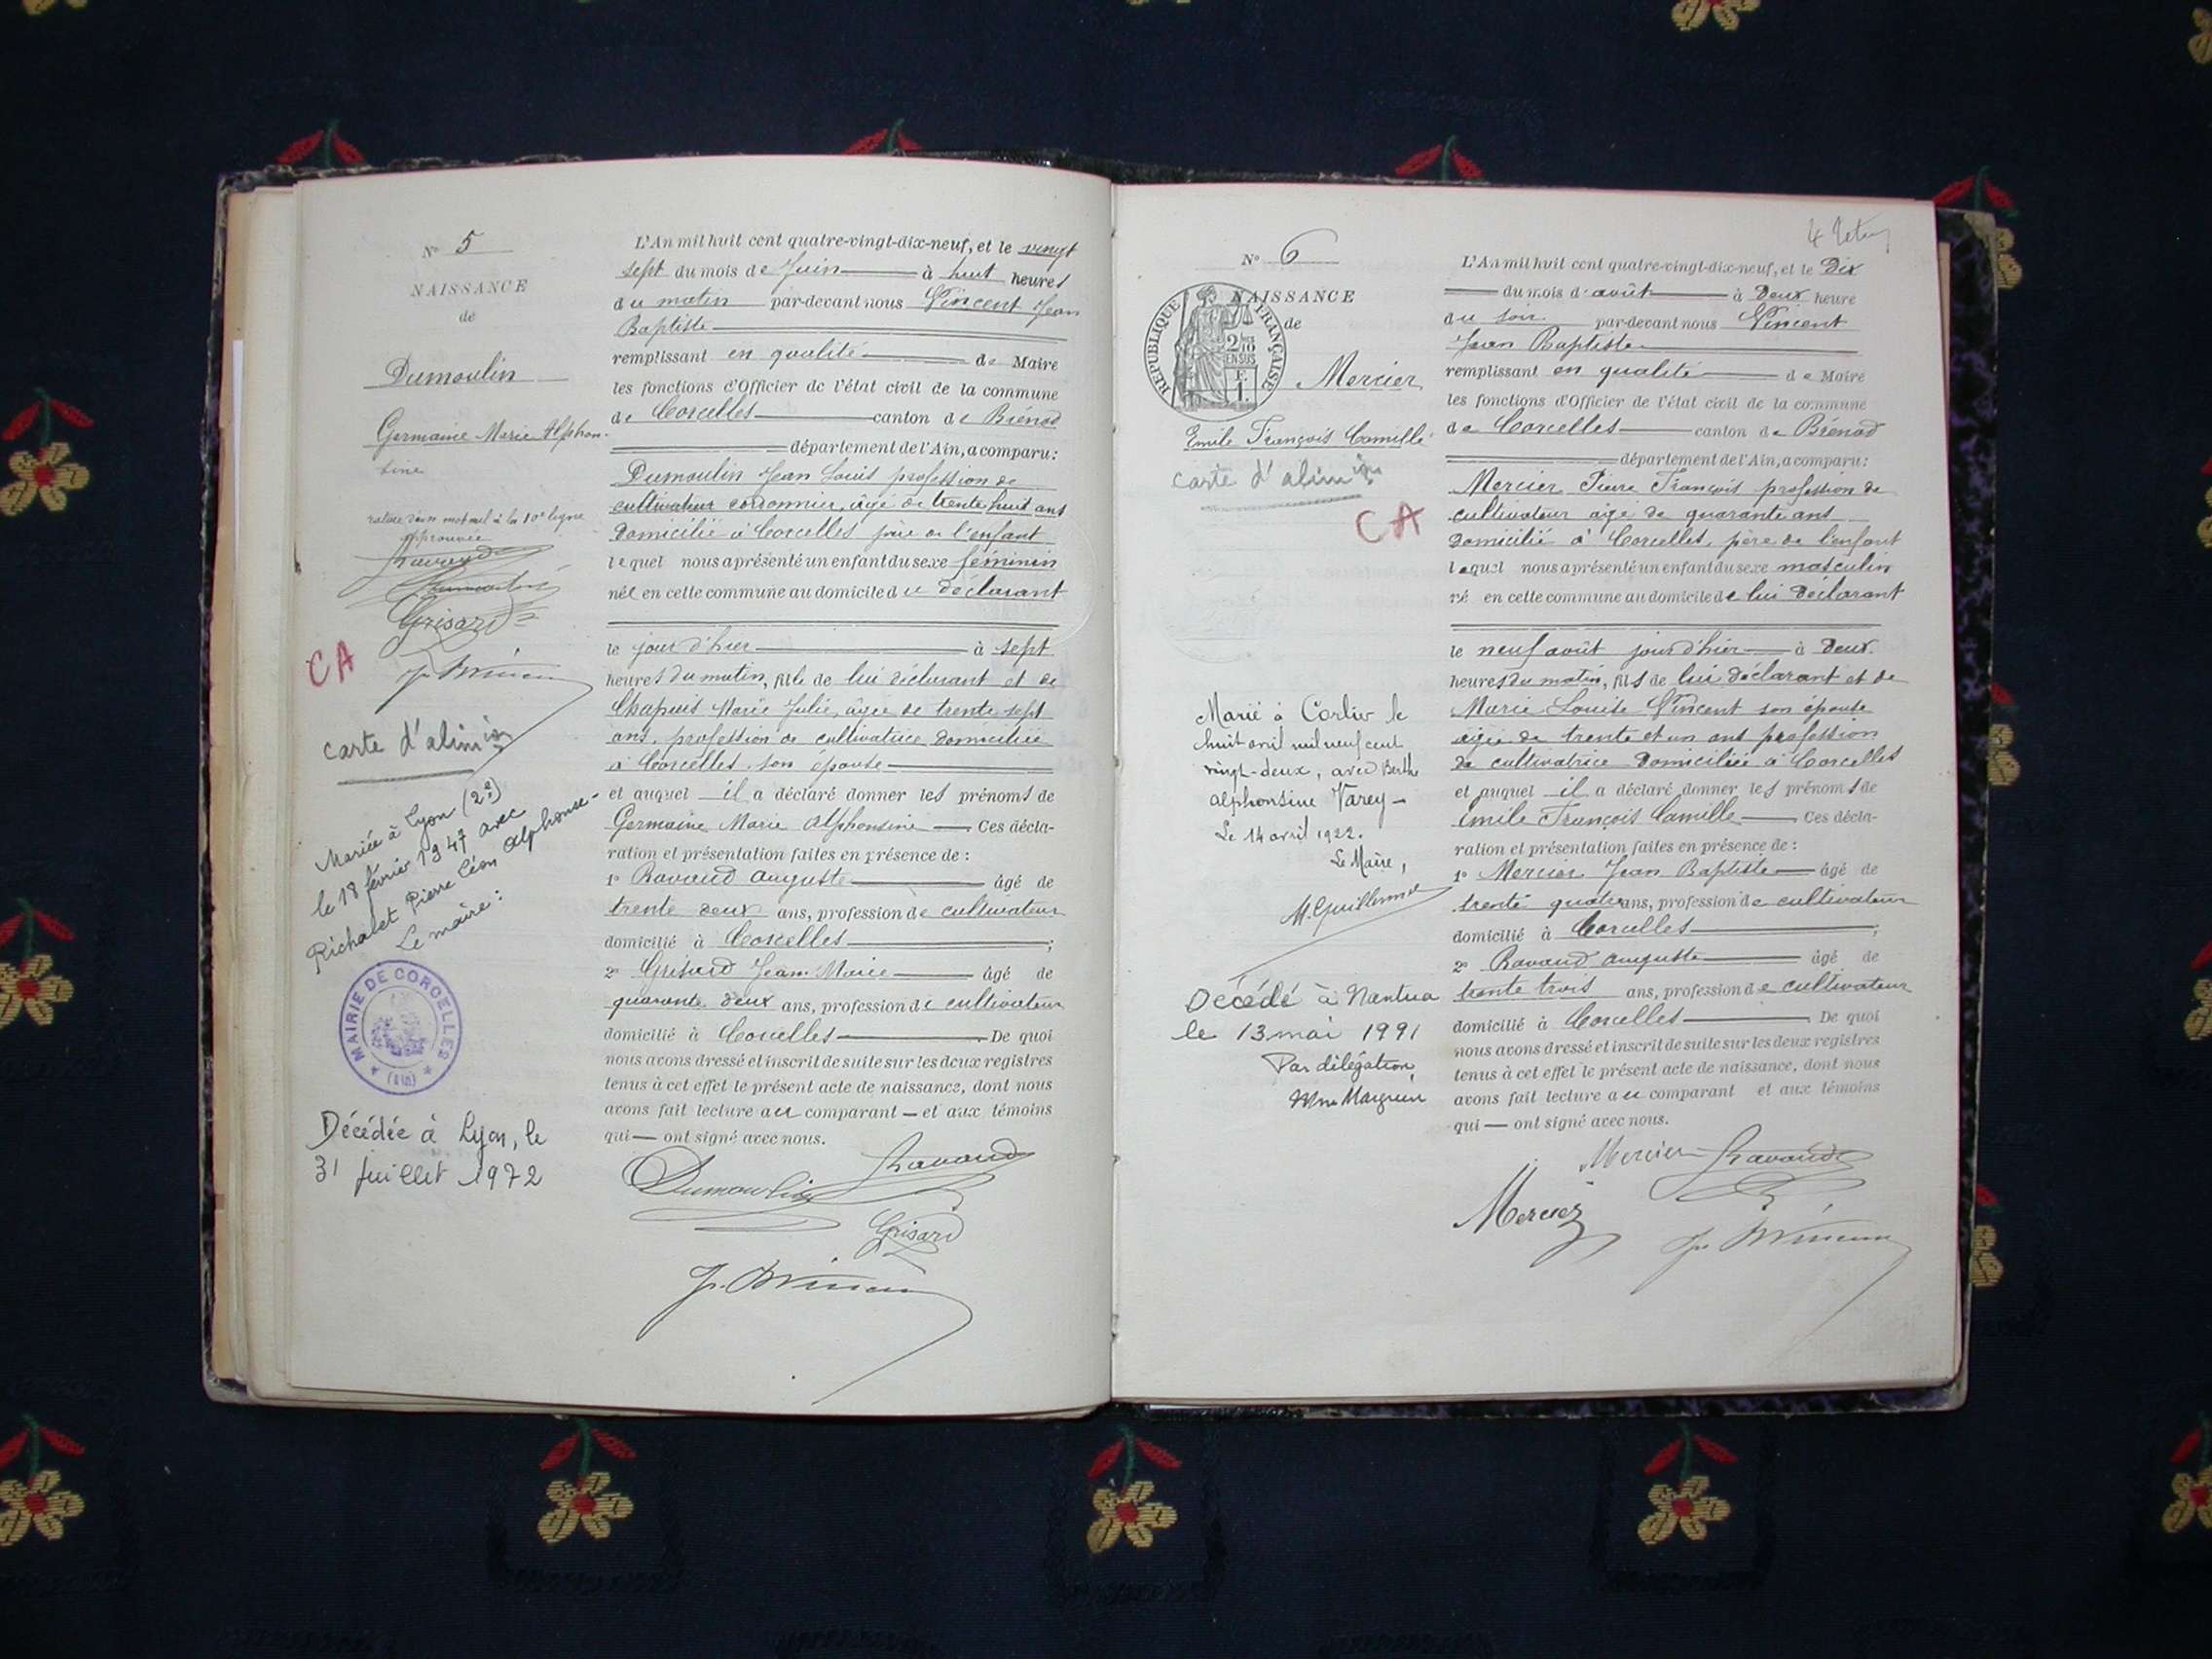 N° 5
NAISSANCE
de
Dumoulin
Germaine Marie Alphon-
sine
rature d'un mot nul à la 10e ligne
approuvée
Ravaud
Dumoulin
Grisard
CA
carte d'alimion
Mariée à Lyon (2e)
le 18 février 1947 avec
Richalet Pierre Léon Alphonse-
Le maire:
MAIRIE DE CORCELLES
(Ain)
Décédée à Lyon, le
31 juillet 1972
L'An mil huit cent quatre-vingt-dix-neuf, et le vingt
sept du mois de Juin à huit heures
du matin par-devant nous Vincent Jean
Baptiste
remplissant en qualité de Maire
les fonctions d'Officier de l'état civil de la commune
de Corcelles canton de Brénod
département de l'Ain, a comparu:
Dumoulin Jean Louis profession de
cultivateur cordonnier, âgé de trente huit ans
domicilié à Corcelles père de l'enfant
lequel nous a présenté un enfant du sexe féminin
née en cette commune au domicile du déclarant
le jour d'hier à sept
heures du matin, fille de lui déclarant et de
Chapuis Marie Julie, âgée de trente sept
ans, profession de cultivatrice domiciliée
à Corcelles, son épouse
et auquel il a déclaré donner les prénoms de
Germaine Marie Alphonsine Ces décla-
ration et présentation faites en présence de :
1° Ravaud Auguste âgé de
trente deux ans, profession de cultivateur
domicilié à Corcelles ;
2° Grisard Jean Marie âgé de
quarante deux ans, profession de cultivateur
domicilié à Corcelles De quoi
nous avons dressé et inscrit de suite sur les deux registres
tenus à cet effet le présent acte de naissance, dont nous
avons fait lecture au comparant et aux témoins
qui ont signé avec nous.
Dumoulin Ravaud
Grisard
N° 6
NAISSANCE
de
REPUBLIQUE FRANÇAISE
2/10
EN SUS
F.
1.
Mercier
Emile François Camille
carte d'alimion
CA
Marié à Corlier le
huit avril mil neuf cent
vingt-deux, avec Berthe
Alphonsine Varey -
Le 14 avril 1922.
Le Maire,
Décédé à Nantua
le 13 mai 1991
Par délégation,
L'An mil huit cent quatre-vingt-dix-neuf, et le Dix
du mois d'août à Deux heure
du soir par-devant nous Vincent
Jean Baptiste
remplissant en qualité de Maire
les fonctions d'Officier de l'état civil de la commune
de Corcelles canton de Brénod
département de l'Ain, a comparu:
Mercier Pierre François profession de
cultivateur âgé de quarante ans
domicilié à Corcelles, père de l'enfant
lequel nous a présenté un enfant du sexe masculin
né en cette commune au domicile de lui déclarant
le neuf août jour d'hier à Deux
heures du matin, fils de lui déclarant et de
Marie Louise Vincent son épouse
âgée de trente et un ans profession
de cultivatrice domiciliée à Corcelles
et auquel il a déclaré donner les prénoms de
Emile François Camille Ces décla-
ration et présentation faites en présence de :
1° Mercier Jean Baptiste âgé de
trente quatre ans, profession de cultivateur
domicilié à Corcelles ;
2° Ravaud Auguste âgé de
trente trois ans, profession de cultivateur
domicilié à Corcelles De quoi
nous avons dressé et inscrit de suite sur les deux registres
tenus à cet effet le présent acte de naissance, dont nous
avons fait lecture au comparant et aux témoins
qui ont signé avec nous.
Mercier Ravaud
Mercier